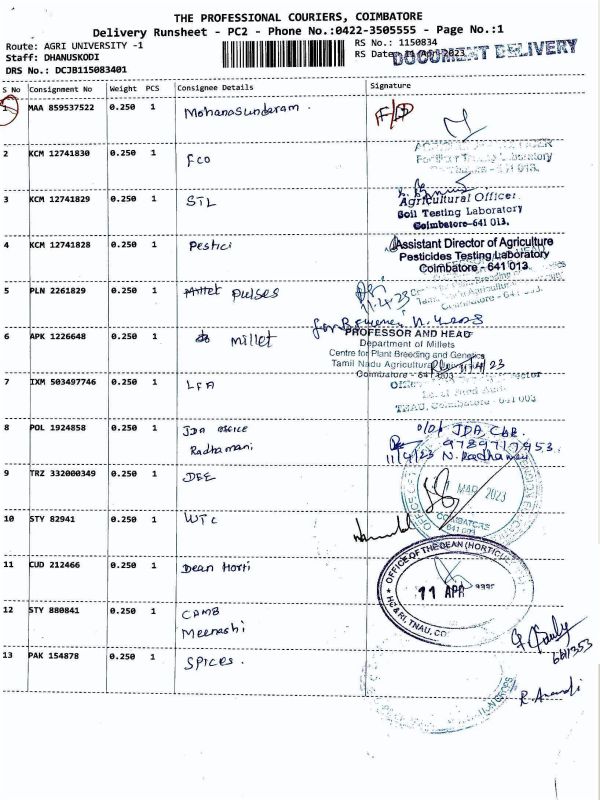 THE PROFESSIONAL COURIERS, COIMBATORE
Delivery Runsheet - PC2 - Phone No.:0422-3505555 - Page No.:1
Route: AGRI UNIVERSITY -1
RS No.: 1150834
Staff: DHANUSKODI
RS Date: 11 Apr 2023
DOCUMENT DELIVERY
DRS No.: DCJB115083401
S No Consignment No Weight PCS Consignee Details Signature
1 MAA 859537522 0.250 1 Mohanasundaram.
2 KCM 12741830 0.250 1 FCO
Laboratory
641 013.
3 KCM 12741829 0.250 1 STL
Agricultural Officer
Soil Testing Laboratory
Coimbatore-641 013.
4 KCM 12741828 0.250 1 Pestici
Assistant Director of Agriculture
Pesticides Testing Laboratory
Coimbatore - 641 013.
5 PLN 2261829 0.250 1 Millet Pulses
11.4.23
6 APK 1226648 0.250 1 Millet
PROFESSOR AND HEAD
Department of Millets
Centre for Plant Breeding and Genetics
Tamil Nadu Agricultural University
Coimbatore - 641 003
11/4/23
7 IXM 503497746 0.250 1 LFA
TNAU, Coimbatore - 641 003
8 POL 1924858 0.250 1 JDA office
Radhamani
o/o JDA, CBE.
9789717953
11/4/23 N. Radhamani
9 TRZ 332000349 0.250 1 DEE
MAR 2023
COIMBATORE
641 003
10 STY 82941 0.250 1 WTC
11 CUD 212466 0.250 1 Dean Horti
OFFICE OF THE DEAN (HORTICULTURE)
11 APR
HC & RI, TNAU, CO
12 STY 880841 0.250 1 CAMB
Meenashi
13 PAK 154878 0.250 1 SPICES.